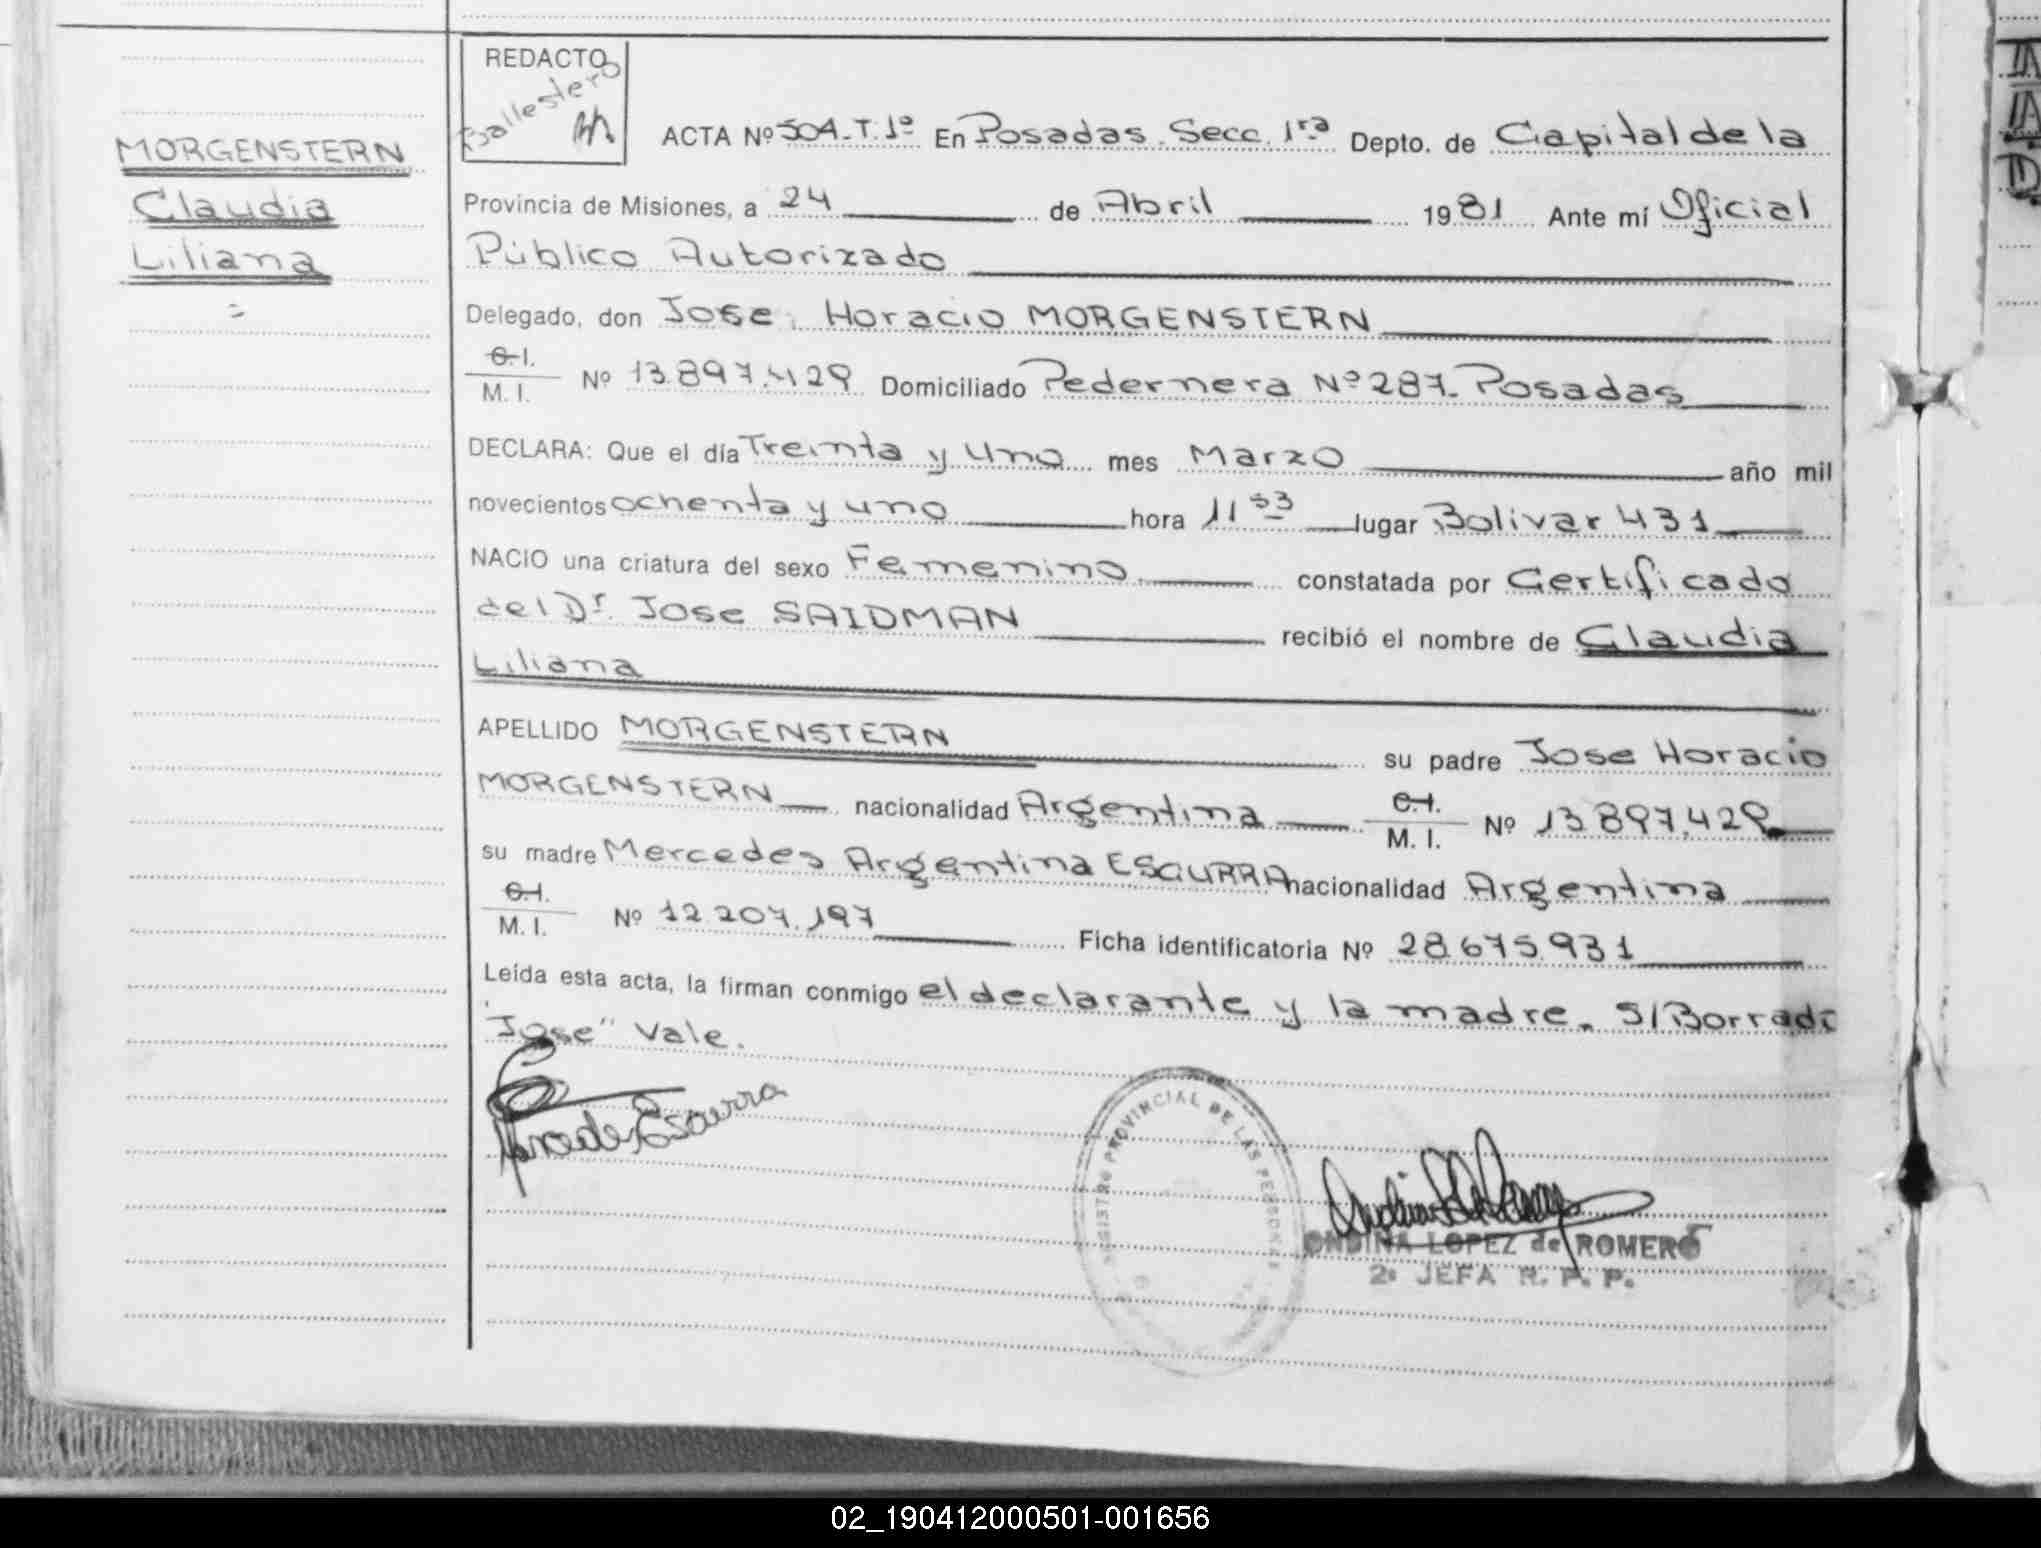 REDACTO
Ballestero
MORGENSTERN
Claudia
Liliana
=
ACTA Nº 504-T.1º En Posadas. Secc. 1ra Depto. de Capital de la
Provincia de Misiones, a 24 de Abril 1981 Ante mí Oficial
Público Autorizado
Delegado, don Jose Horacio MORGENSTERN
C.I.
M.I. Nº 13.897.429 Domiciliado Pedernera Nº 287- Posadas
DECLARA: Que el día Treinta y Uno mes Marzo año mil
novecientos ochenta y uno hora 11 53 lugar Bolivar 431
NACIO una criatura del sexo Femenino constatada por Certificado
del Dr. Jose SAIDMAN recibió el nombre de Claudia
Liliana
APELLIDO MORGENSTERN su padre Jose Horacio
MORGENSTERN nacionalidad Argentina C.I.
M.I. Nº 13.897.429
su madre Mercedes Argentina ESCURRA nacionalidad Argentina
C.I.
M.I. Nº 12.207.197 Ficha identificatoria Nº 28.675.931
Leída esta acta, la firman conmigo el declarante y la madre. S/Borrado
"Jose" Vale.
Mercedes Escurra
REGISTRO PROVINCIAL DE LAS PERSONAS
ONDINA LOPEZ de ROMERO
2ª JEFA R. P. P.
02_190412000501-001656